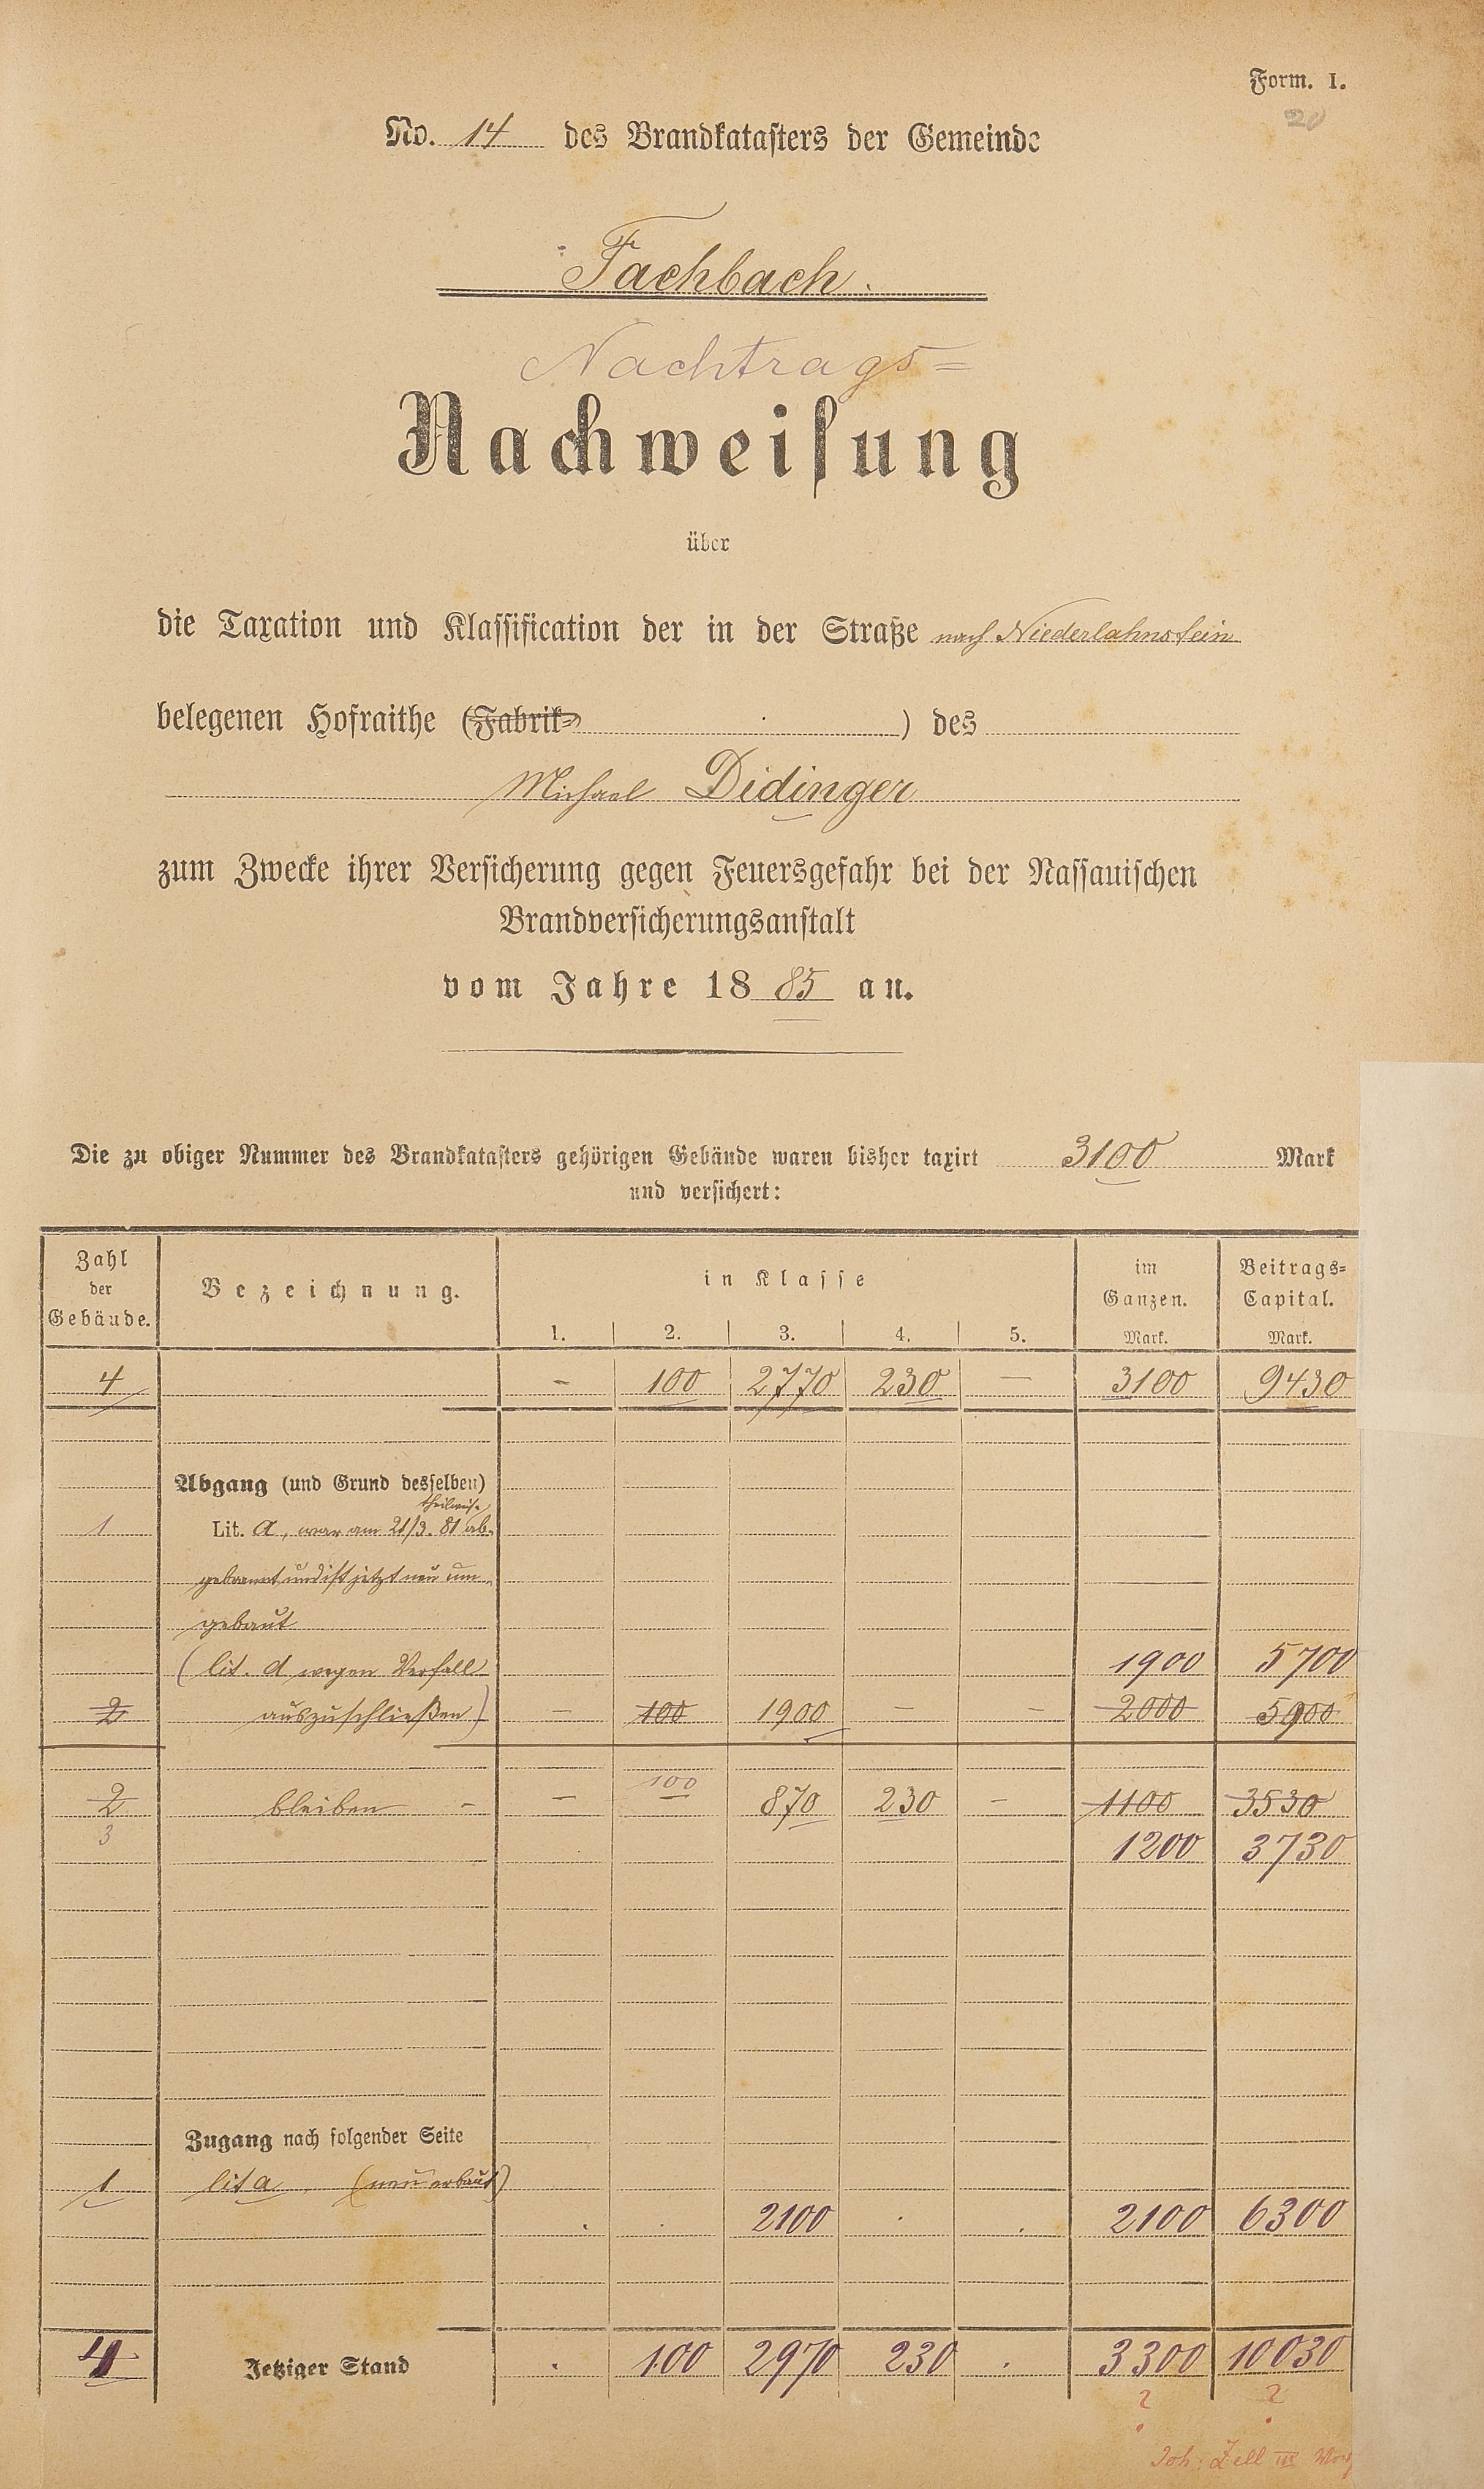 Form. I.
20
No. 14 des Brandkatasters der Gemeinde
Fachbach.
Nachtrags=
Nachweisung
über
die Taxation und Klassification der in der Straße nach Niederlahnstein
belegenen Hofraithe (Fabrik= ) des
Michael Didinger
zum Zwecke ihrer Versicherung gegen Feuersgefahr bei der Nassauischen
Brandversicherungsanstalt
vom Jahre 18 85 an.
Die zu obiger Nummer des Brandkatasters gehörigen Gebäude waren bisher taxirt 3100 Mark
und versichert:
Zahl der Gebäude. Bezeichnung. in Klasse im Ganzen. Beitrags= Capital.
1. 2. 3. 4. 5. Mark. Mark.
4 – 100 2770 230 – 3100 9430
Abgang (und Grund desselben)
theilweise
1 Lit. A, war am 21/3. 81 ab-
gebrannt und ist jetzt neu um-
gebaut
(lit. d wegen Verfall 1900 5700
2 auszuschließen) – 100 1900 – – 2000 5900
100
2 bleiben – – 870 230 – 1100 3530
3 1200 3730
Zugang nach folgender Seite
1 lit a (neu erbaut)
. . 2100 . . 2100 6300
4 Jetziger Stand . 100 2970 230 . 3300 10030
? ?
Joh: Zell III